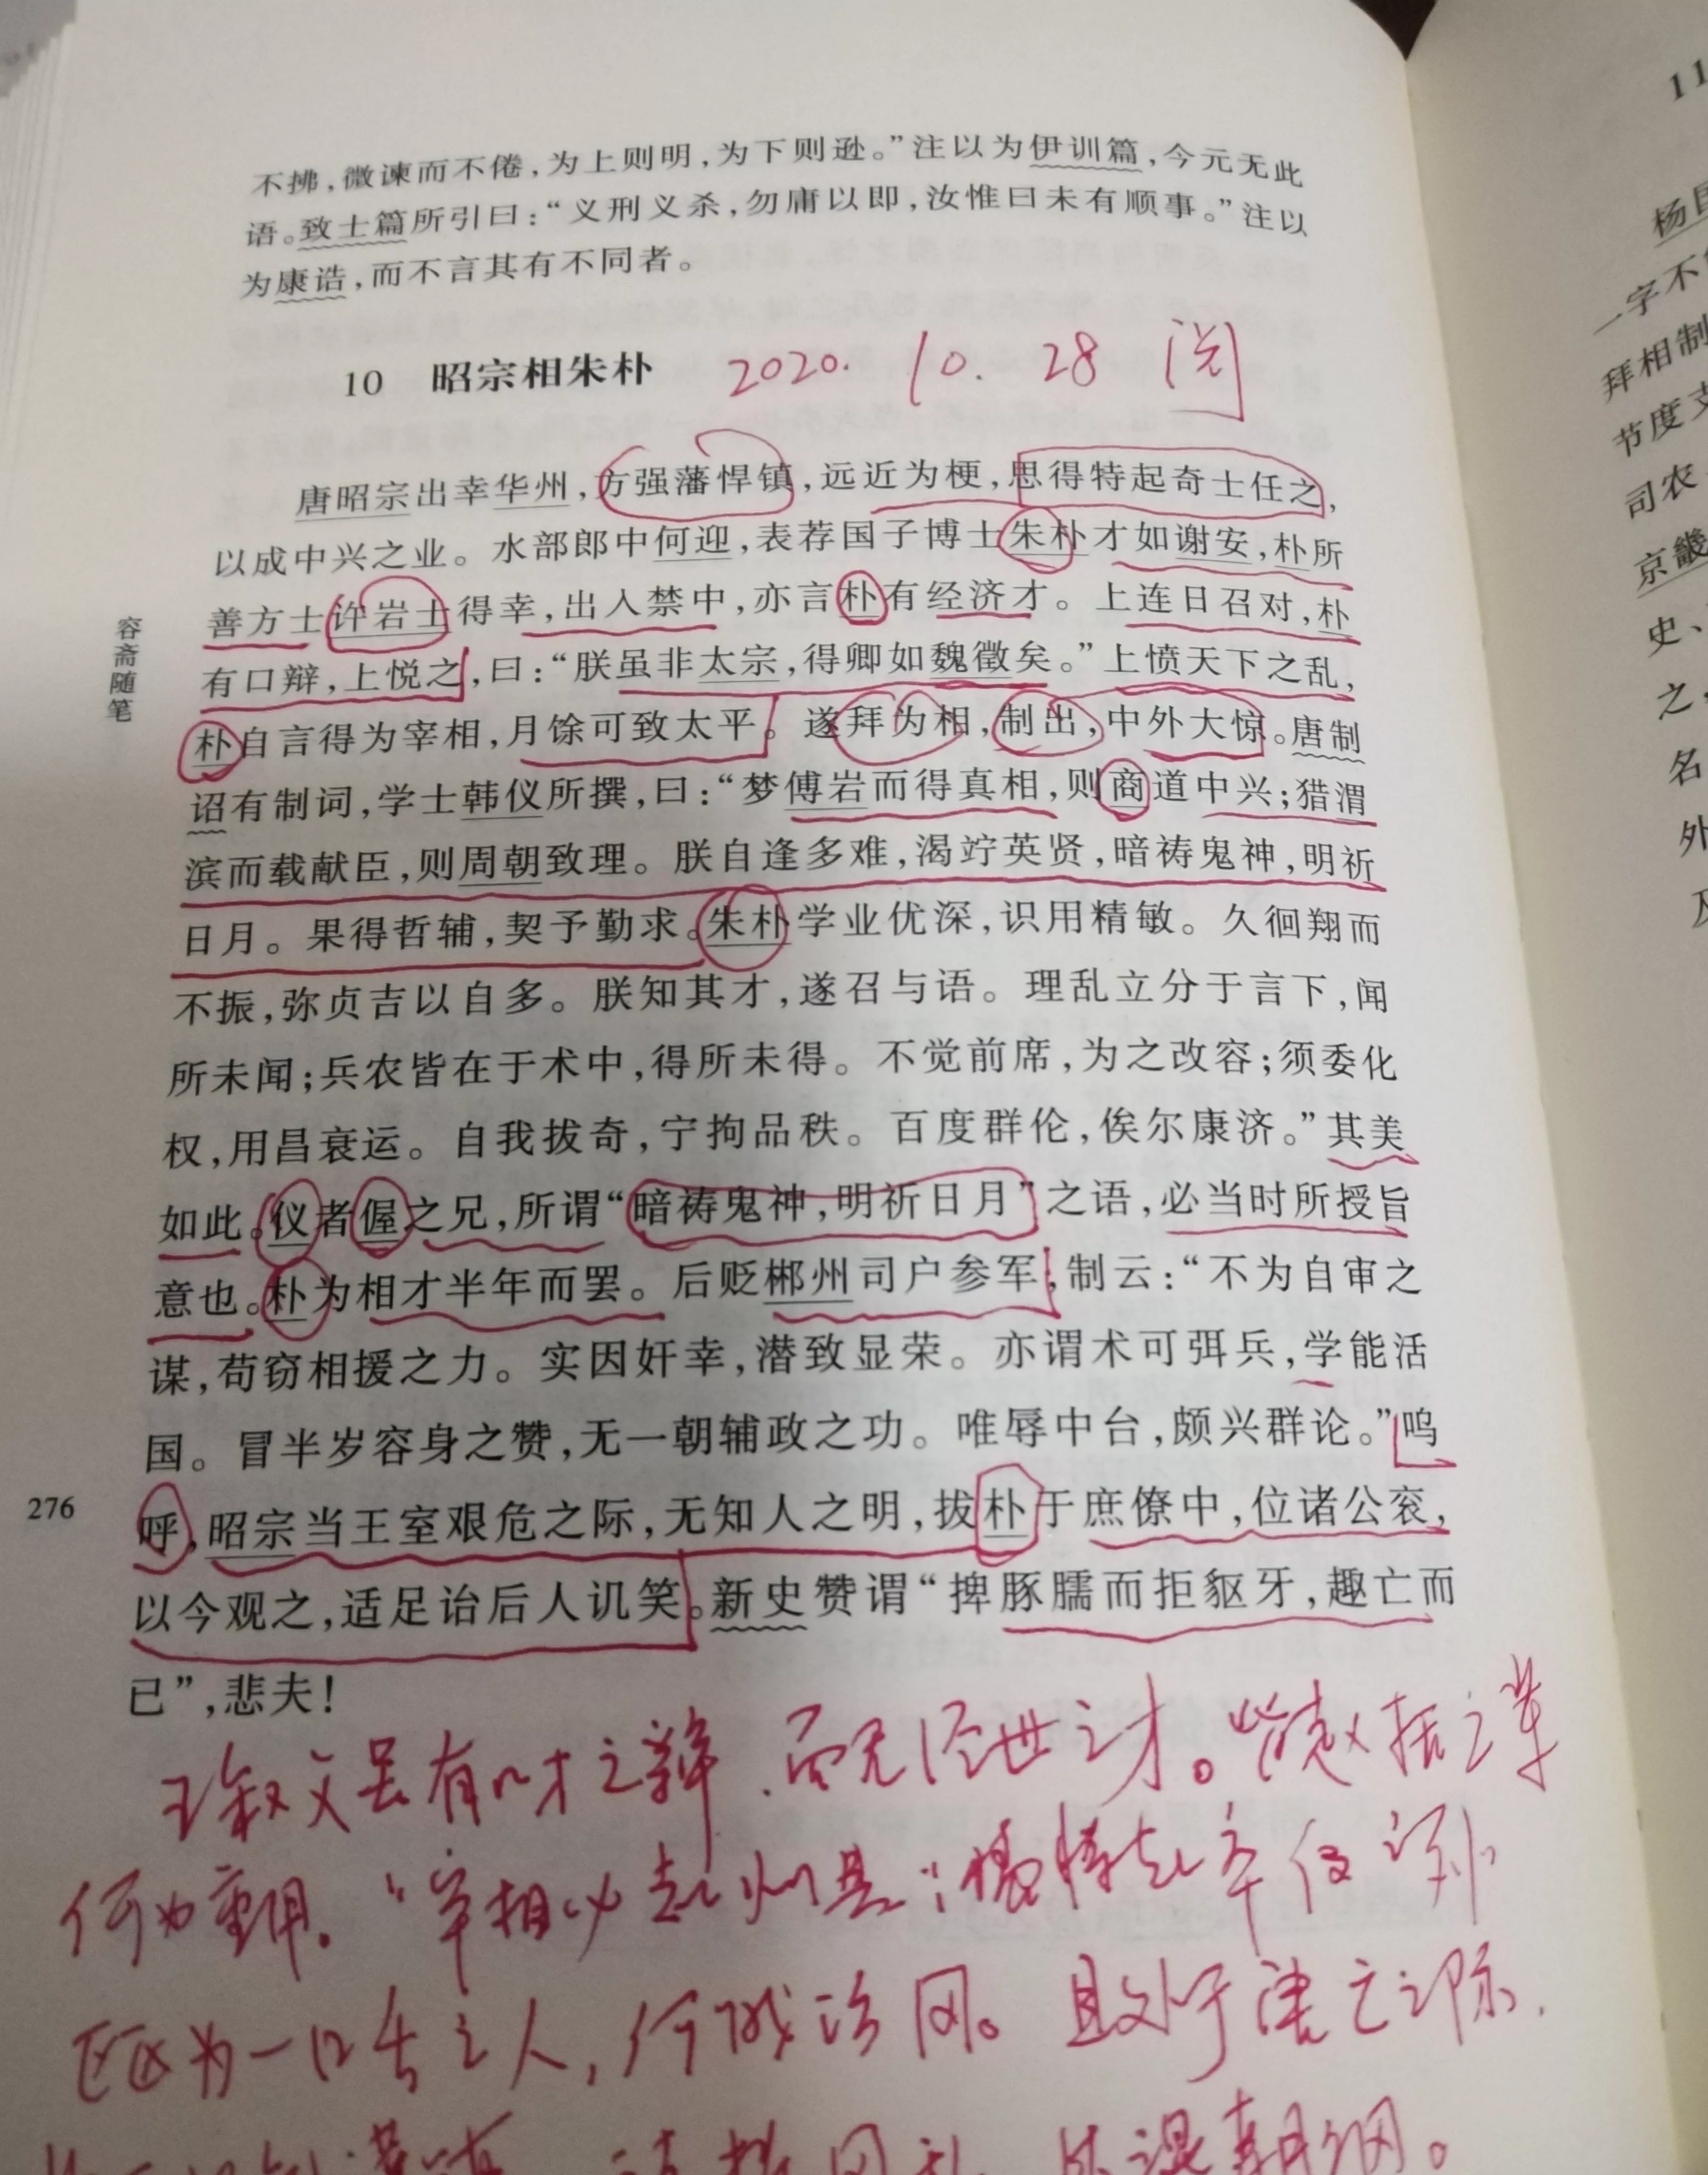 不拂，微谏而不倦，为上则明，为下则逊。”注以为伊训篇，今元无此
语。致士篇所引曰：“义刑义杀，勿庸以即，汝惟曰未有顺事。”注以
为康诰，而不言其有不同者。
10 昭宗相朱朴 2020. 10. 28 阅
唐昭宗出幸华州，方强藩悍镇，远近为梗，思得特起奇士任之，
以成中兴之业。水部郎中何迎，表荐国子博士朱朴才如谢安，朴所
善方士许岩士得幸，出入禁中，亦言朴有经济才。上连日召对，朴
有口辩，上悦之，曰：“朕虽非太宗，得卿如魏徵矣。”上愤天下之乱，
朴自言得为宰相，月馀可致太平。遂拜为相，制出，中外大惊。唐制
诏有制词，学士韩仪所撰，曰：“梦傅岩而得真相，则商道中兴；猎渭
滨而载献臣，则周朝致理。朕自逢多难，渴竚英贤，暗祷鬼神，明祈
日月。果得哲辅，契予勤求。朱朴学业优深，识用精敏。久徊翔而
不振，弥贞吉以自多。朕知其才，遂召与语。理乱立分于言下，闻
所未闻；兵农皆在于术中，得所未得。不觉前席，为之改容；须委化
权，用昌衰运。自我拔奇，宁拘品秩。百度群伦，俟尔康济。”其美
如此。仪者偓之兄，所谓“暗祷鬼神，明祈日月”之语，必当时所授旨
意也。朴为相才半年而罢。后贬郴州司户参军，制云：“不为自审之
谋，苟窃相援之力。实因奸幸，潜致显荣。亦谓术可弭兵，学能活
国。冒半岁容身之赞，无一朝辅政之功。唯辱中台，颇兴群论。”呜
呼，昭宗当王室艰危之际，无知人之明，拔朴于庶僚中，位诸公衮，
以今观之，适足诒后人讥笑。新史赞谓“捭豚臑而拒貙牙，趣亡而
已”，悲夫！
容斋随笔
276
王叔文虽有口才之辩，而无经世之才。此赵括之辈
何为重用。“宰相必起州县；猛将起卒伍
区区为一口舌之人，何成治国。且处于唐亡之际，
朝纲。
11
杨
一字不
拜相制
节度支
司农
京畿
史、
之，
名
外
及